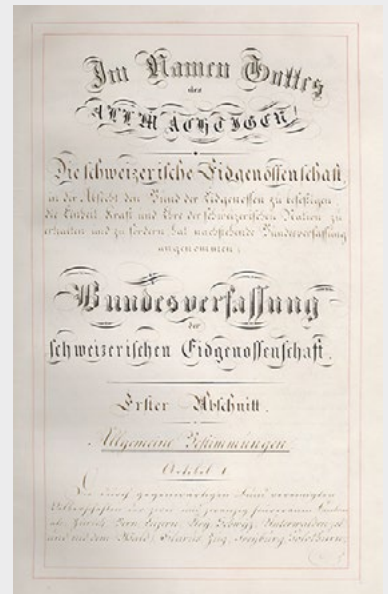 Im Namen Gottes
des
ALLMÄCHTIGEN!
Die schweizerische Eidgenossenschaft,
in der Absicht den Bund der Eidgenossen zu befestigen
die Einheit Kraft und Ehre der schweizerischen Nation zu
erhalten und zu fördern, hat nachstehende Bundesverfassung
angenommen:
Bundesverfassung
der
schweizerischen Eidgenossenschaft.
Erster Abschnitt.
Allgemeine Bestimmungen
Artikel 1
Die durch gegenwärtigen Bund vereinigten
Völkerschaften der zwei und zwanzig souveränen Kantone
als: Zürich, Bern, Luzern, Ury, Schwyz, Unterwalden
und nid dem Wald, Glarus, Zug, Freyburg, Solothurn,